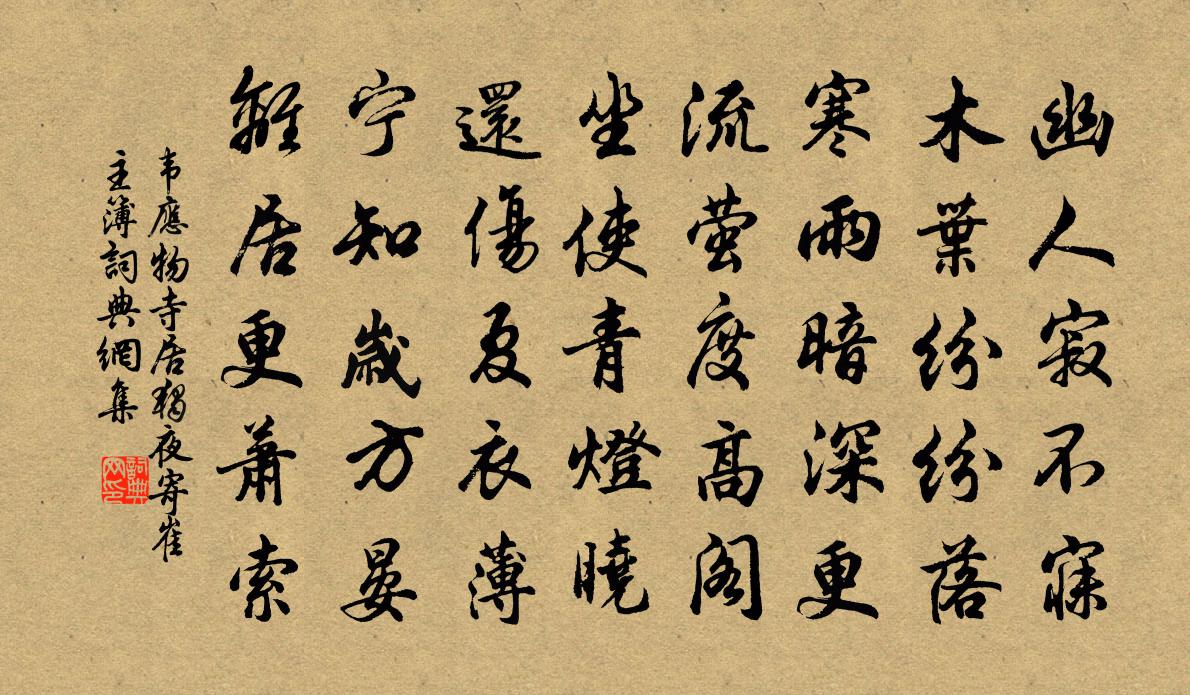 幽人寂不寐
木葉紛紛落
寒雨暗深更
流萤度高閣
坐使青燈曉
還傷夏衣薄
宁知歲方晏
離居更蕭索
韦應物寺居獨夜寄崔
主簿詞典網集
詞典
网印